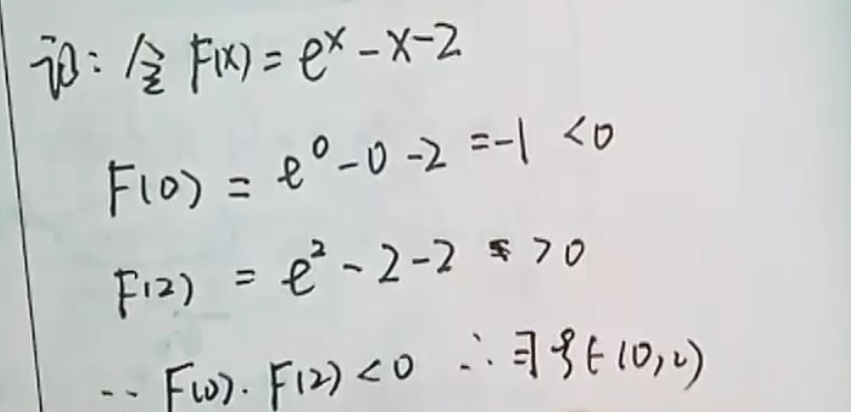 证: 令 F(x) = e^x - x - 2
F(0) = e^0 - 0 - 2 = -1 < 0
F(2) = e^2 - 2 - 2 > 0
∵ F(0)·F(2) < 0 ∴ ∃ξ∈(0,2)